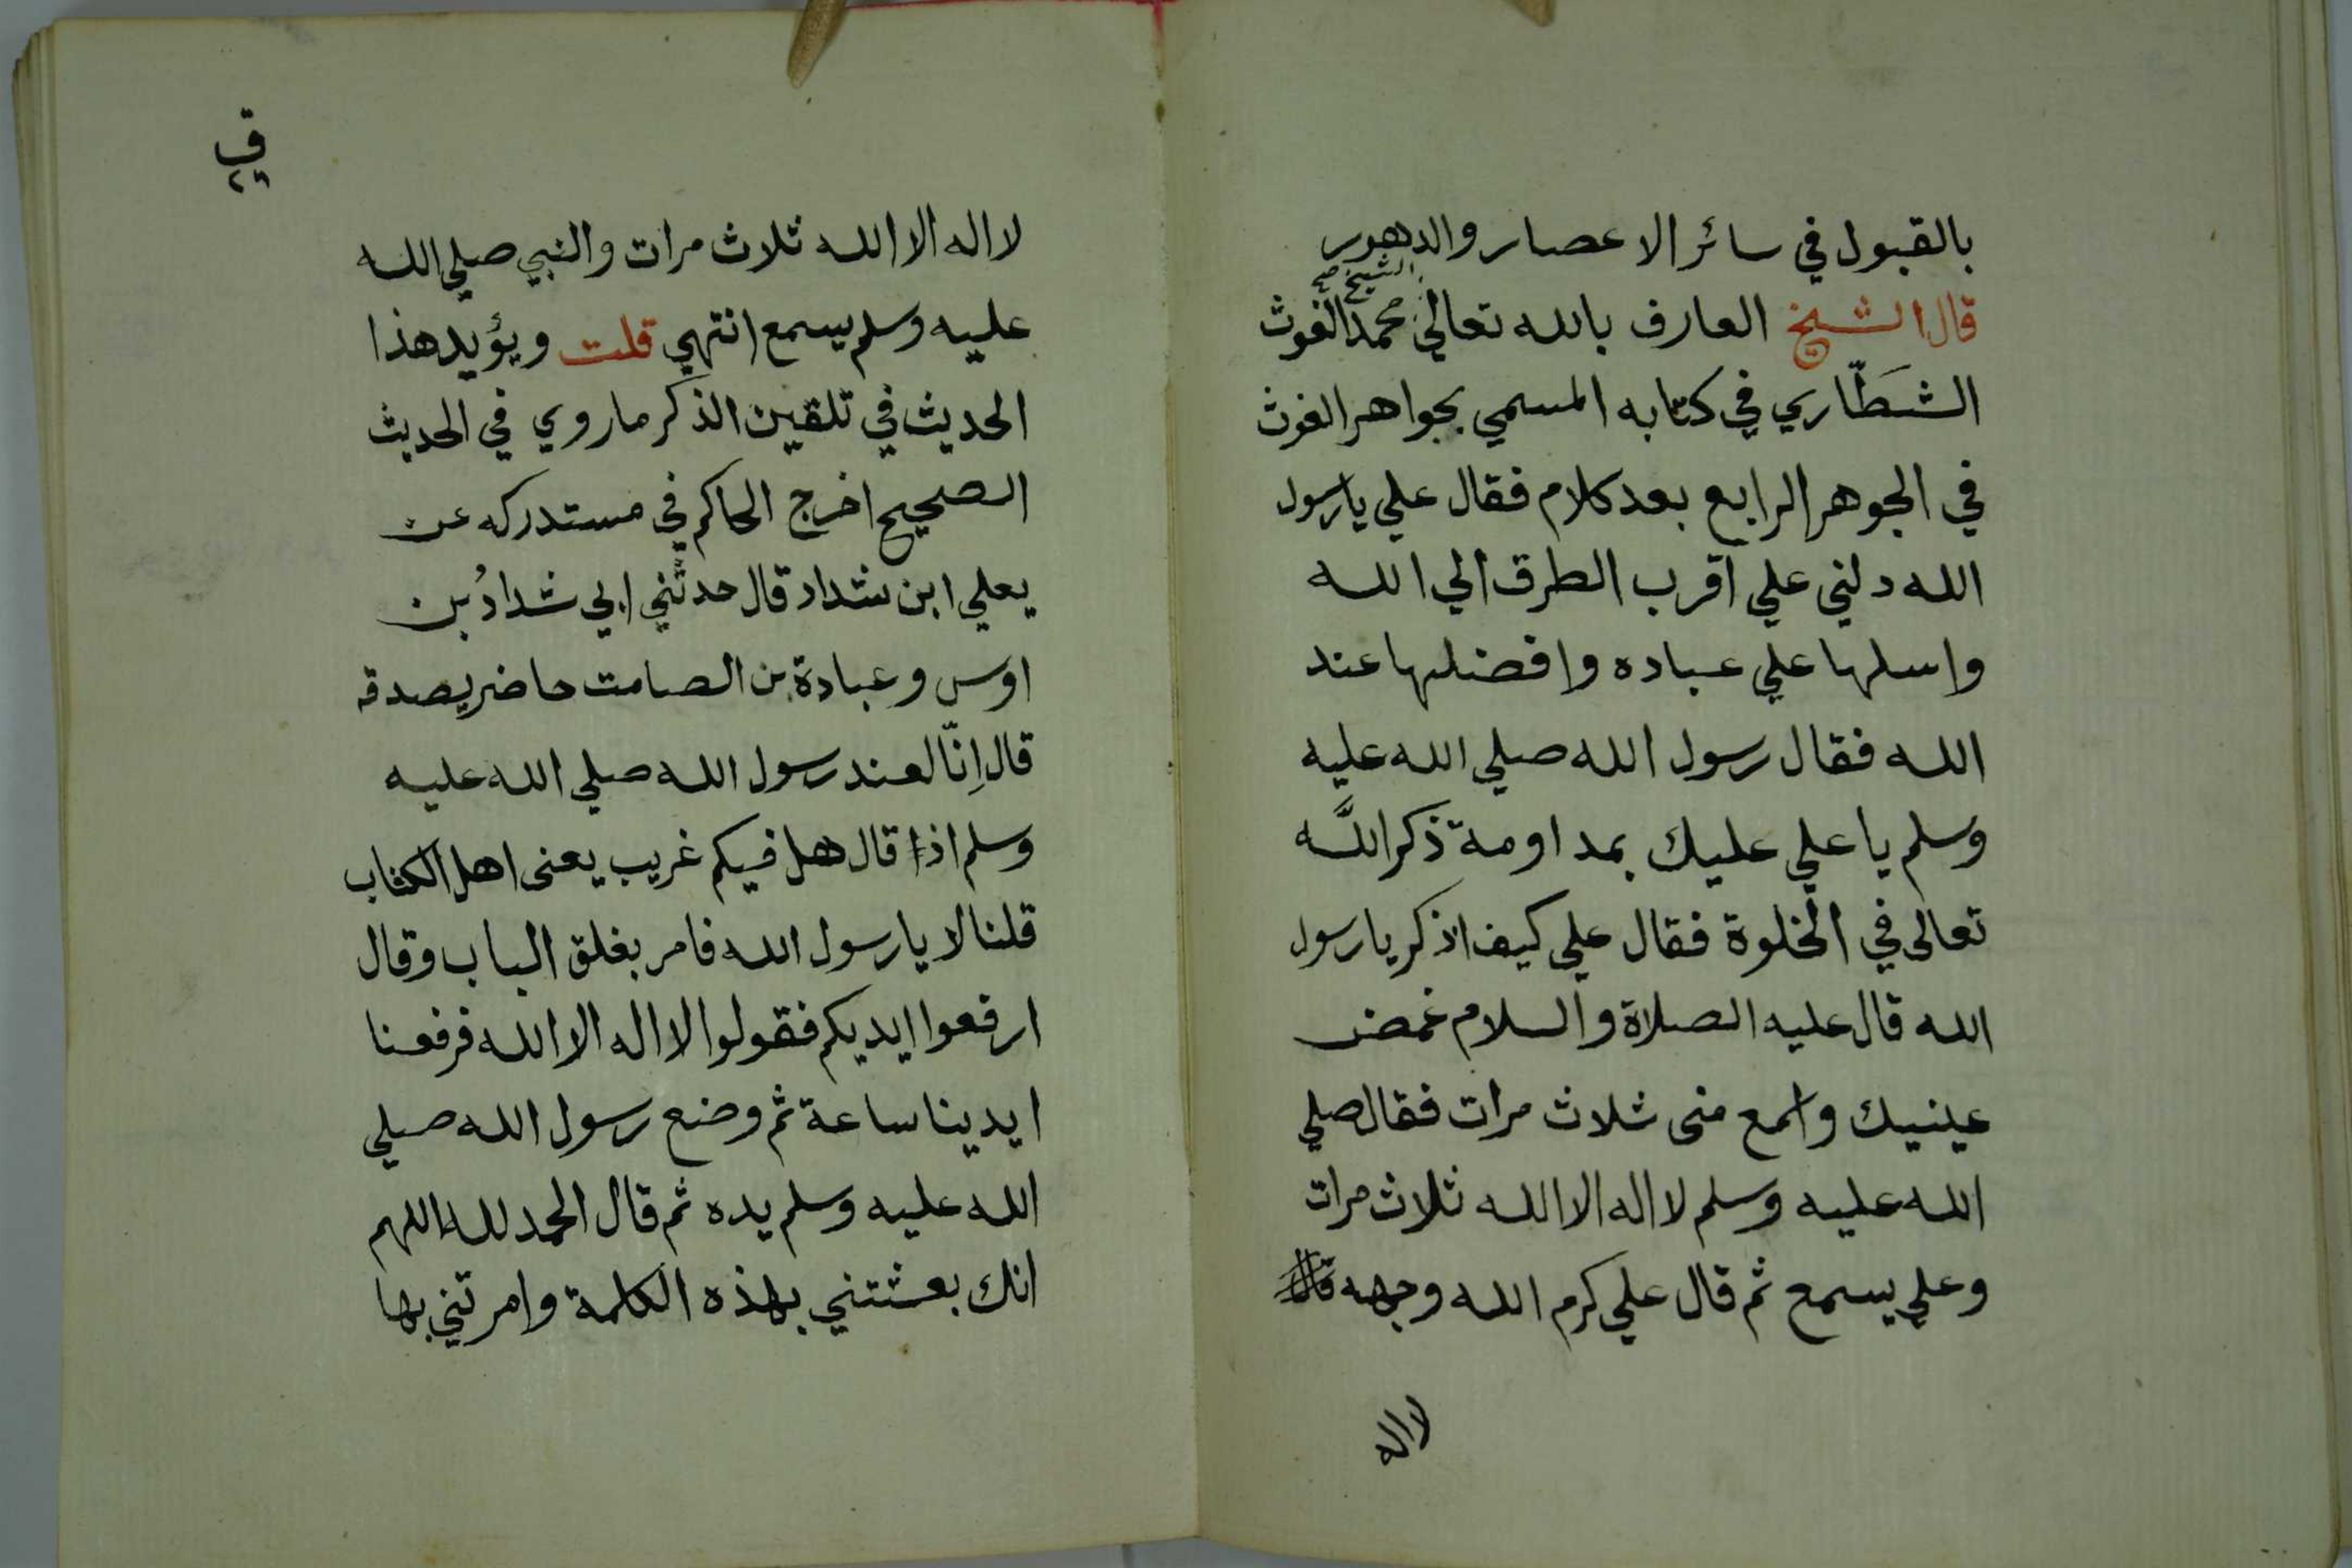 بالقبول في سائر الاعصار والدهور
الشيخ صح
قال الشيخ العارف بالله تعالي محمد الغوث
الشَطّاري في كتابه المسمي بجواهر الغوث
في الجوهر الرابع بعد كلام فقال علي يا رسول
الله دلني علي اقرب الطرق الي الله
واسلها علي عباده وافضلها عند
الله فقال رسول الله صلي الله عليه
وسلم يا علي عليك بمداومة ذكر اللَّه
تعالى في الخلوة فقال علي كيف اذكر يا رسول
الله قال عليه الصلاة والسلام غمض
عينيك واسمع منى ثلاث مرات فقال صلي
الله عليه وسلم لا اله الا الله ثلاث مرات
وعلي يسمع ثم قال علي كرم الله وجهه
لا اله
في
لا اله الا الله ثلاث مرات والنبي صلي الله
عليه وسلم يسمع انتهي قلت ويؤيد هذا
الحديث في تلقين الذكر ما روي في الحديث
الصحيح اخرج الحاكم في مستدركه عن
يعلي ابن شداد قال حدثني ابي شدادُ بن
اوس وعبادة بن الصامت حاضر يصدقه
قال اِنّا لعند رسول الله صلي الله عليه
وسلم اذا قال هل فيكم غريب يعنى اهل الكتاب
قلنا لا يا رسول الله فامر بغلق الباب وقال
ارفعوا ايديكم فقولوا لا اله الا الله فرفعنا
ايدينا ساعة ثم وضع رسول الله صلي
الله عليه وسلم يده ثم قال الحمد لله اللهم
انك بعثتني بهذه الكلمة وامرتني بها